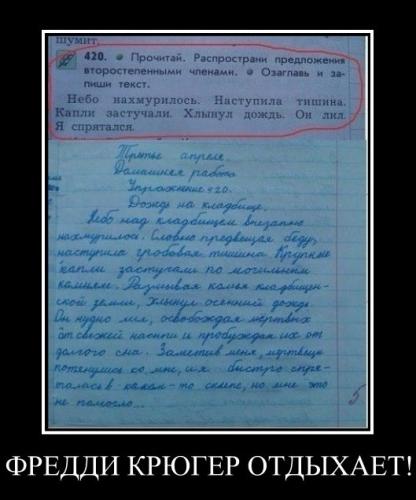 шумит,
420. Прочитай. Распространи предложения
второстепенными членами. Озаглавь и за-
пиши текст.
Небо нахмурилось. Наступила тишина.
Капли застучали. Хлынул дождь. Он лил.
Я спрятался.
Третье апреля.
Домашняя работа
Упражнение 420.
Дождь на кладбище.
Небо над кладбищем внезапно
нахмурилось. Словно предвещая беду,
наступила гробовая тишина. Крупные
капли застучали по могильным
камням. Размывая комья кладбищен-
ской земли, хлынул осенний дождь.
Он нудно лил, освобождая мёртвых
от свежей насыпи и пробуждая их от
долгого сна. Заметив меня, мертвецы
потянулись ко мне, и я быстро спря-
талась в каком-то склепе, но мне это
не помогло...
5
ФРЕДДИ КРЮГЕР ОТДЫХАЕТ!